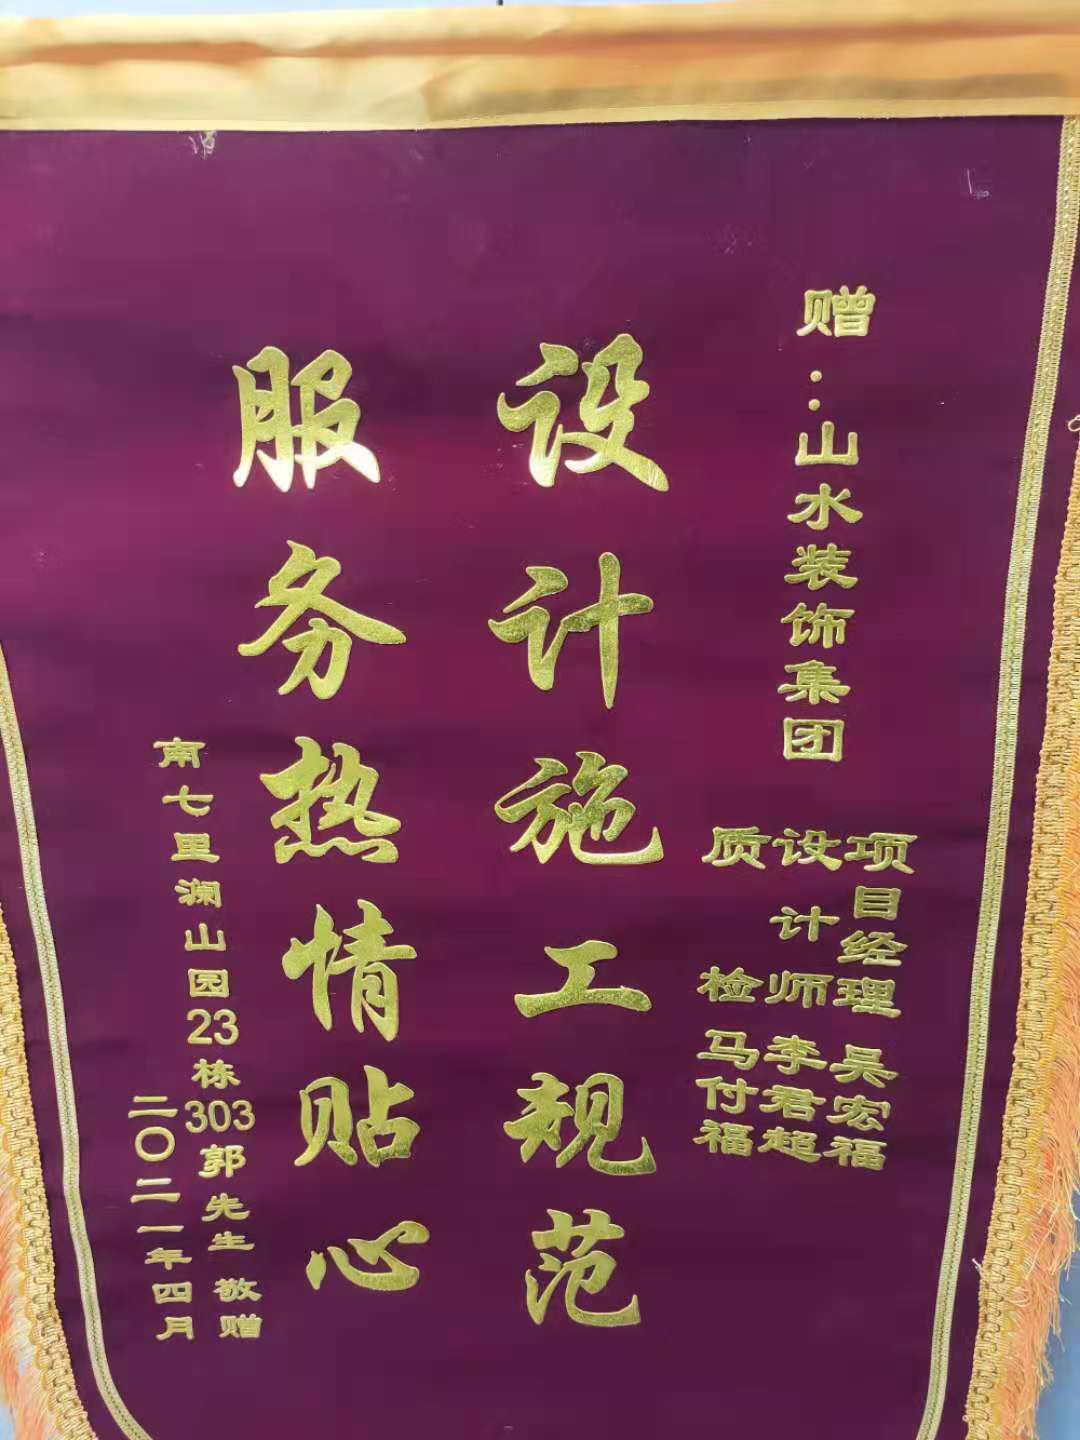 赠：山水装饰集团
项目经理 吴宏福
设计师 李君超
质检 马付福
设计施工规范
服务热情贴心
南七里澜山园23栋303郭先生 敬赠
二〇二一年四月